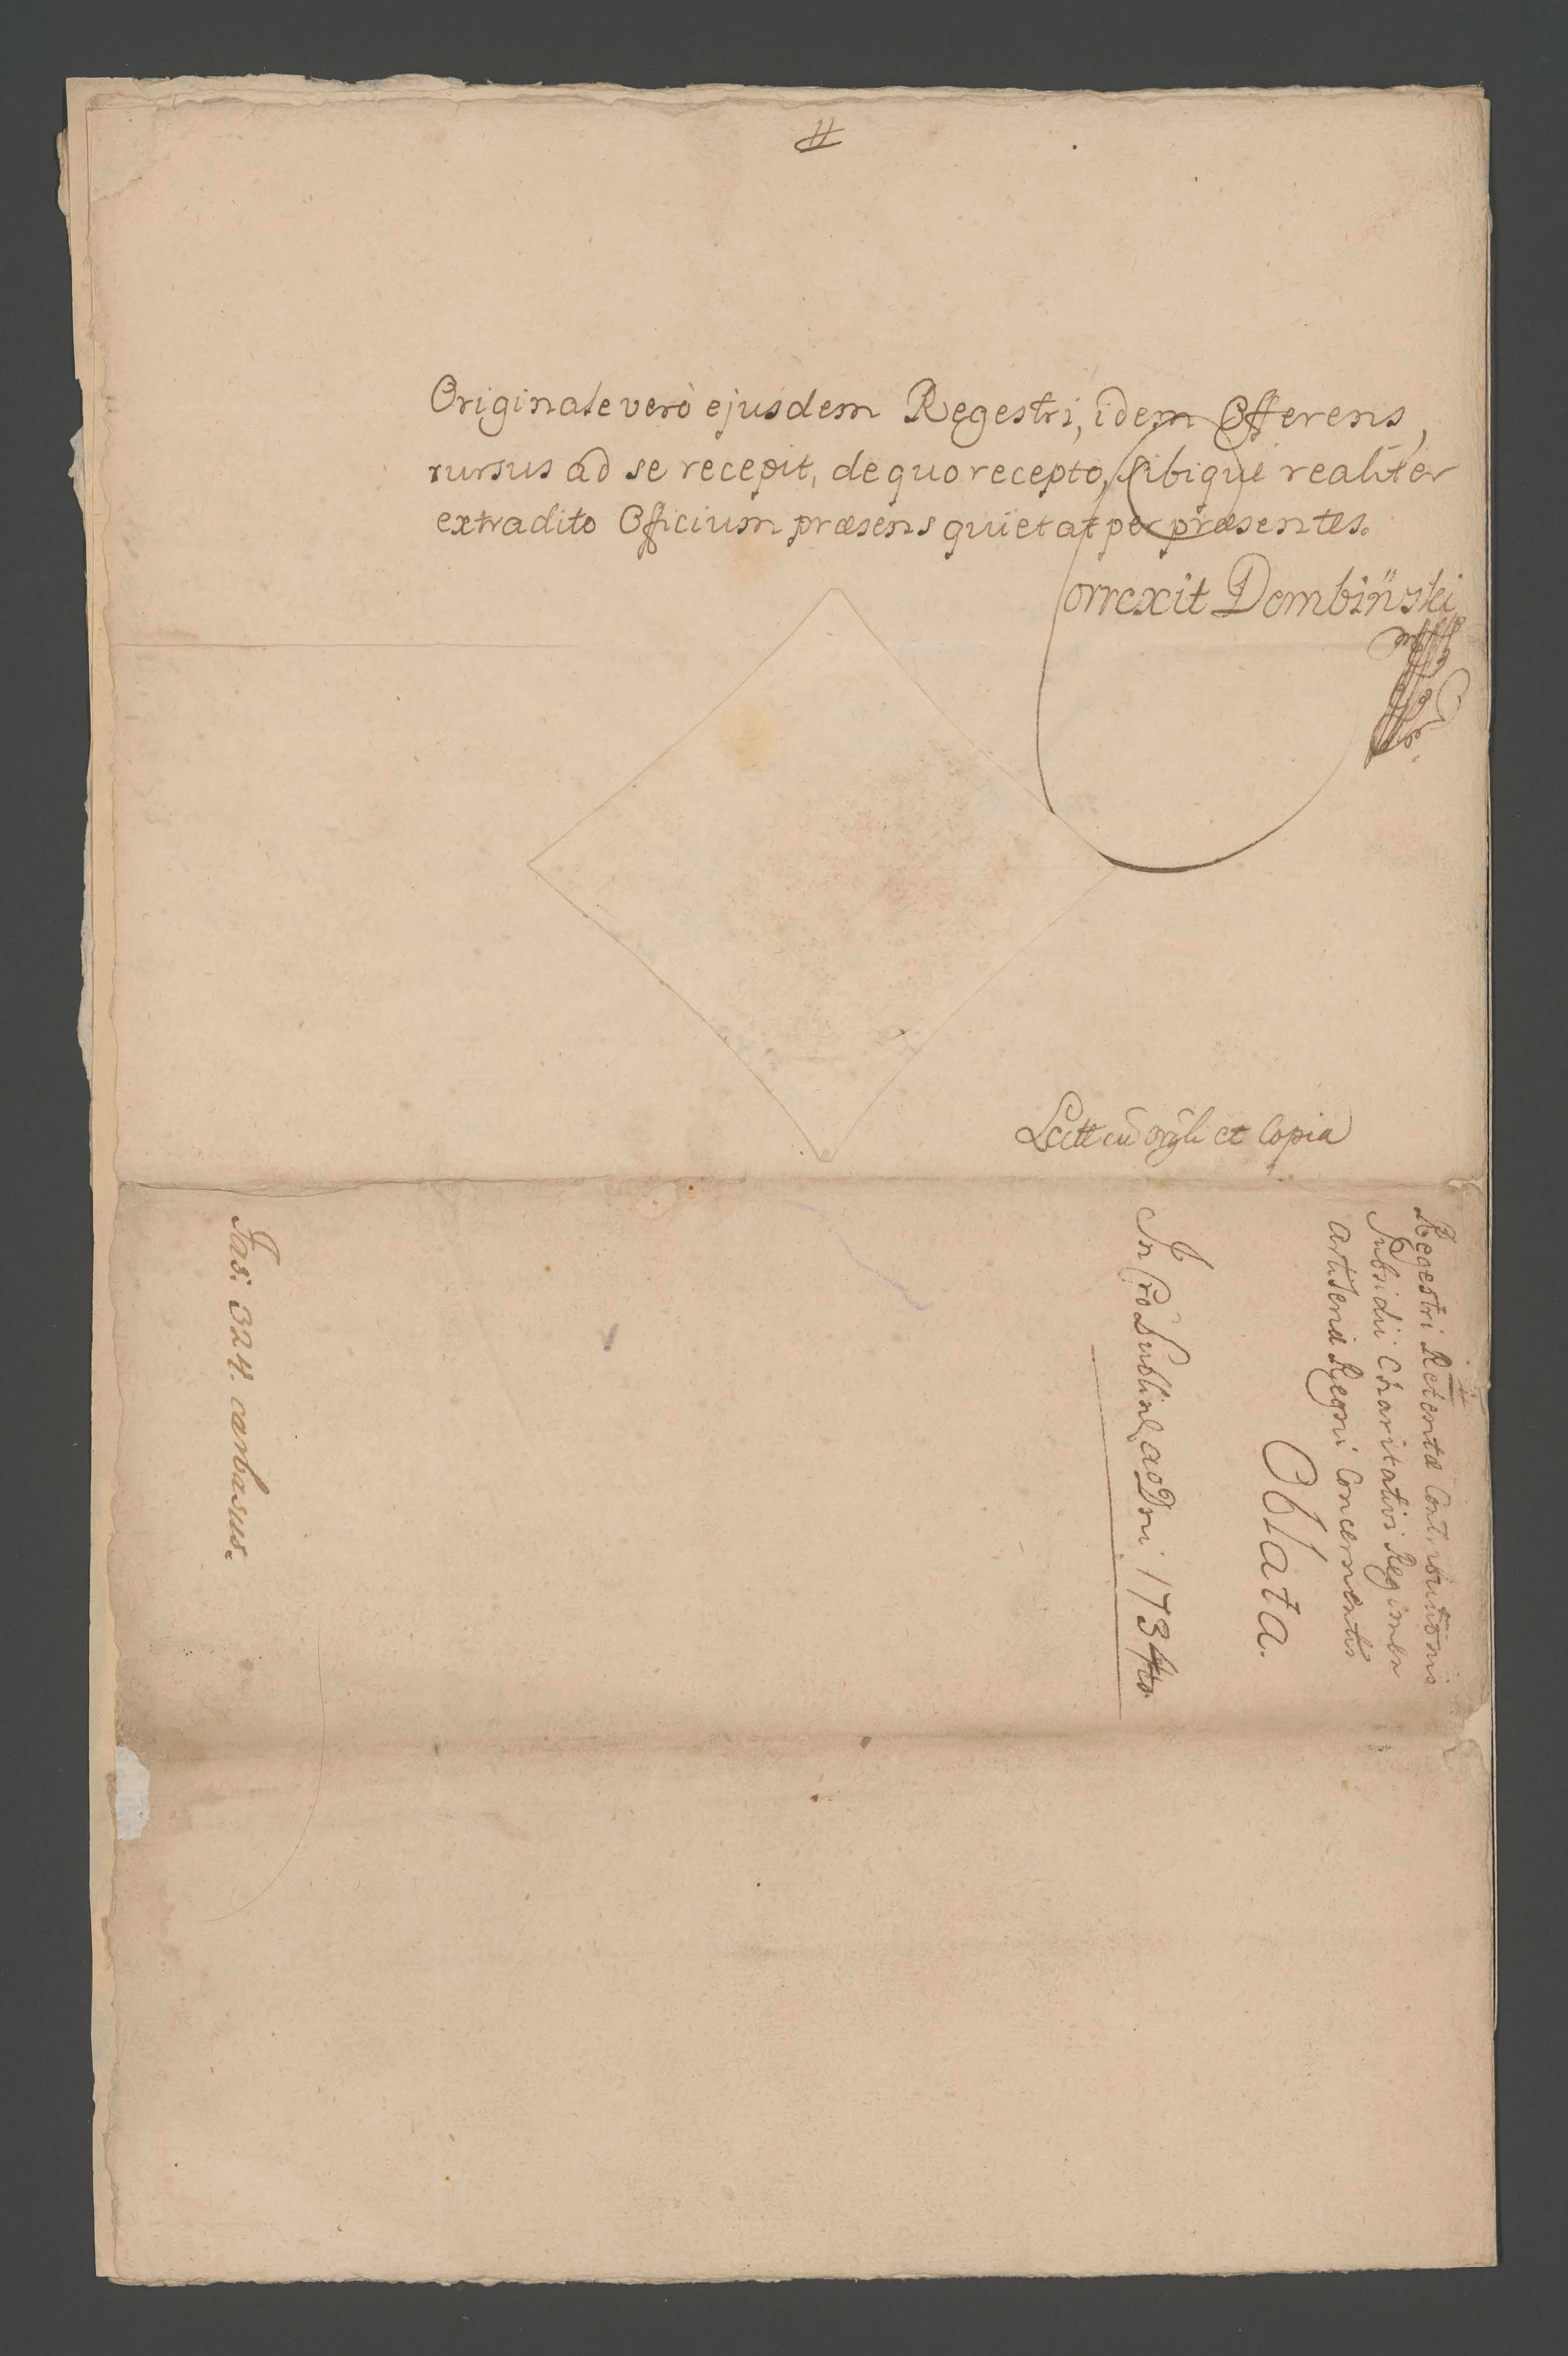 Originale verò ejusdem Regestri, idem Offerens,
rursus ad se recepit, de quo recepto, sibique realiter
extradito Officium præsens quietat per præsentes.
Correxit Dombiński
mpp
Lectt cū orgli et Copia
Regestri Retentæ Contributionis
Subsidii Charitativi Regimen
artileriæ Regni Concernentis
Oblata.
In Cro Lublinẽ ao Dni 1734to
Fas: 324. carbasus.